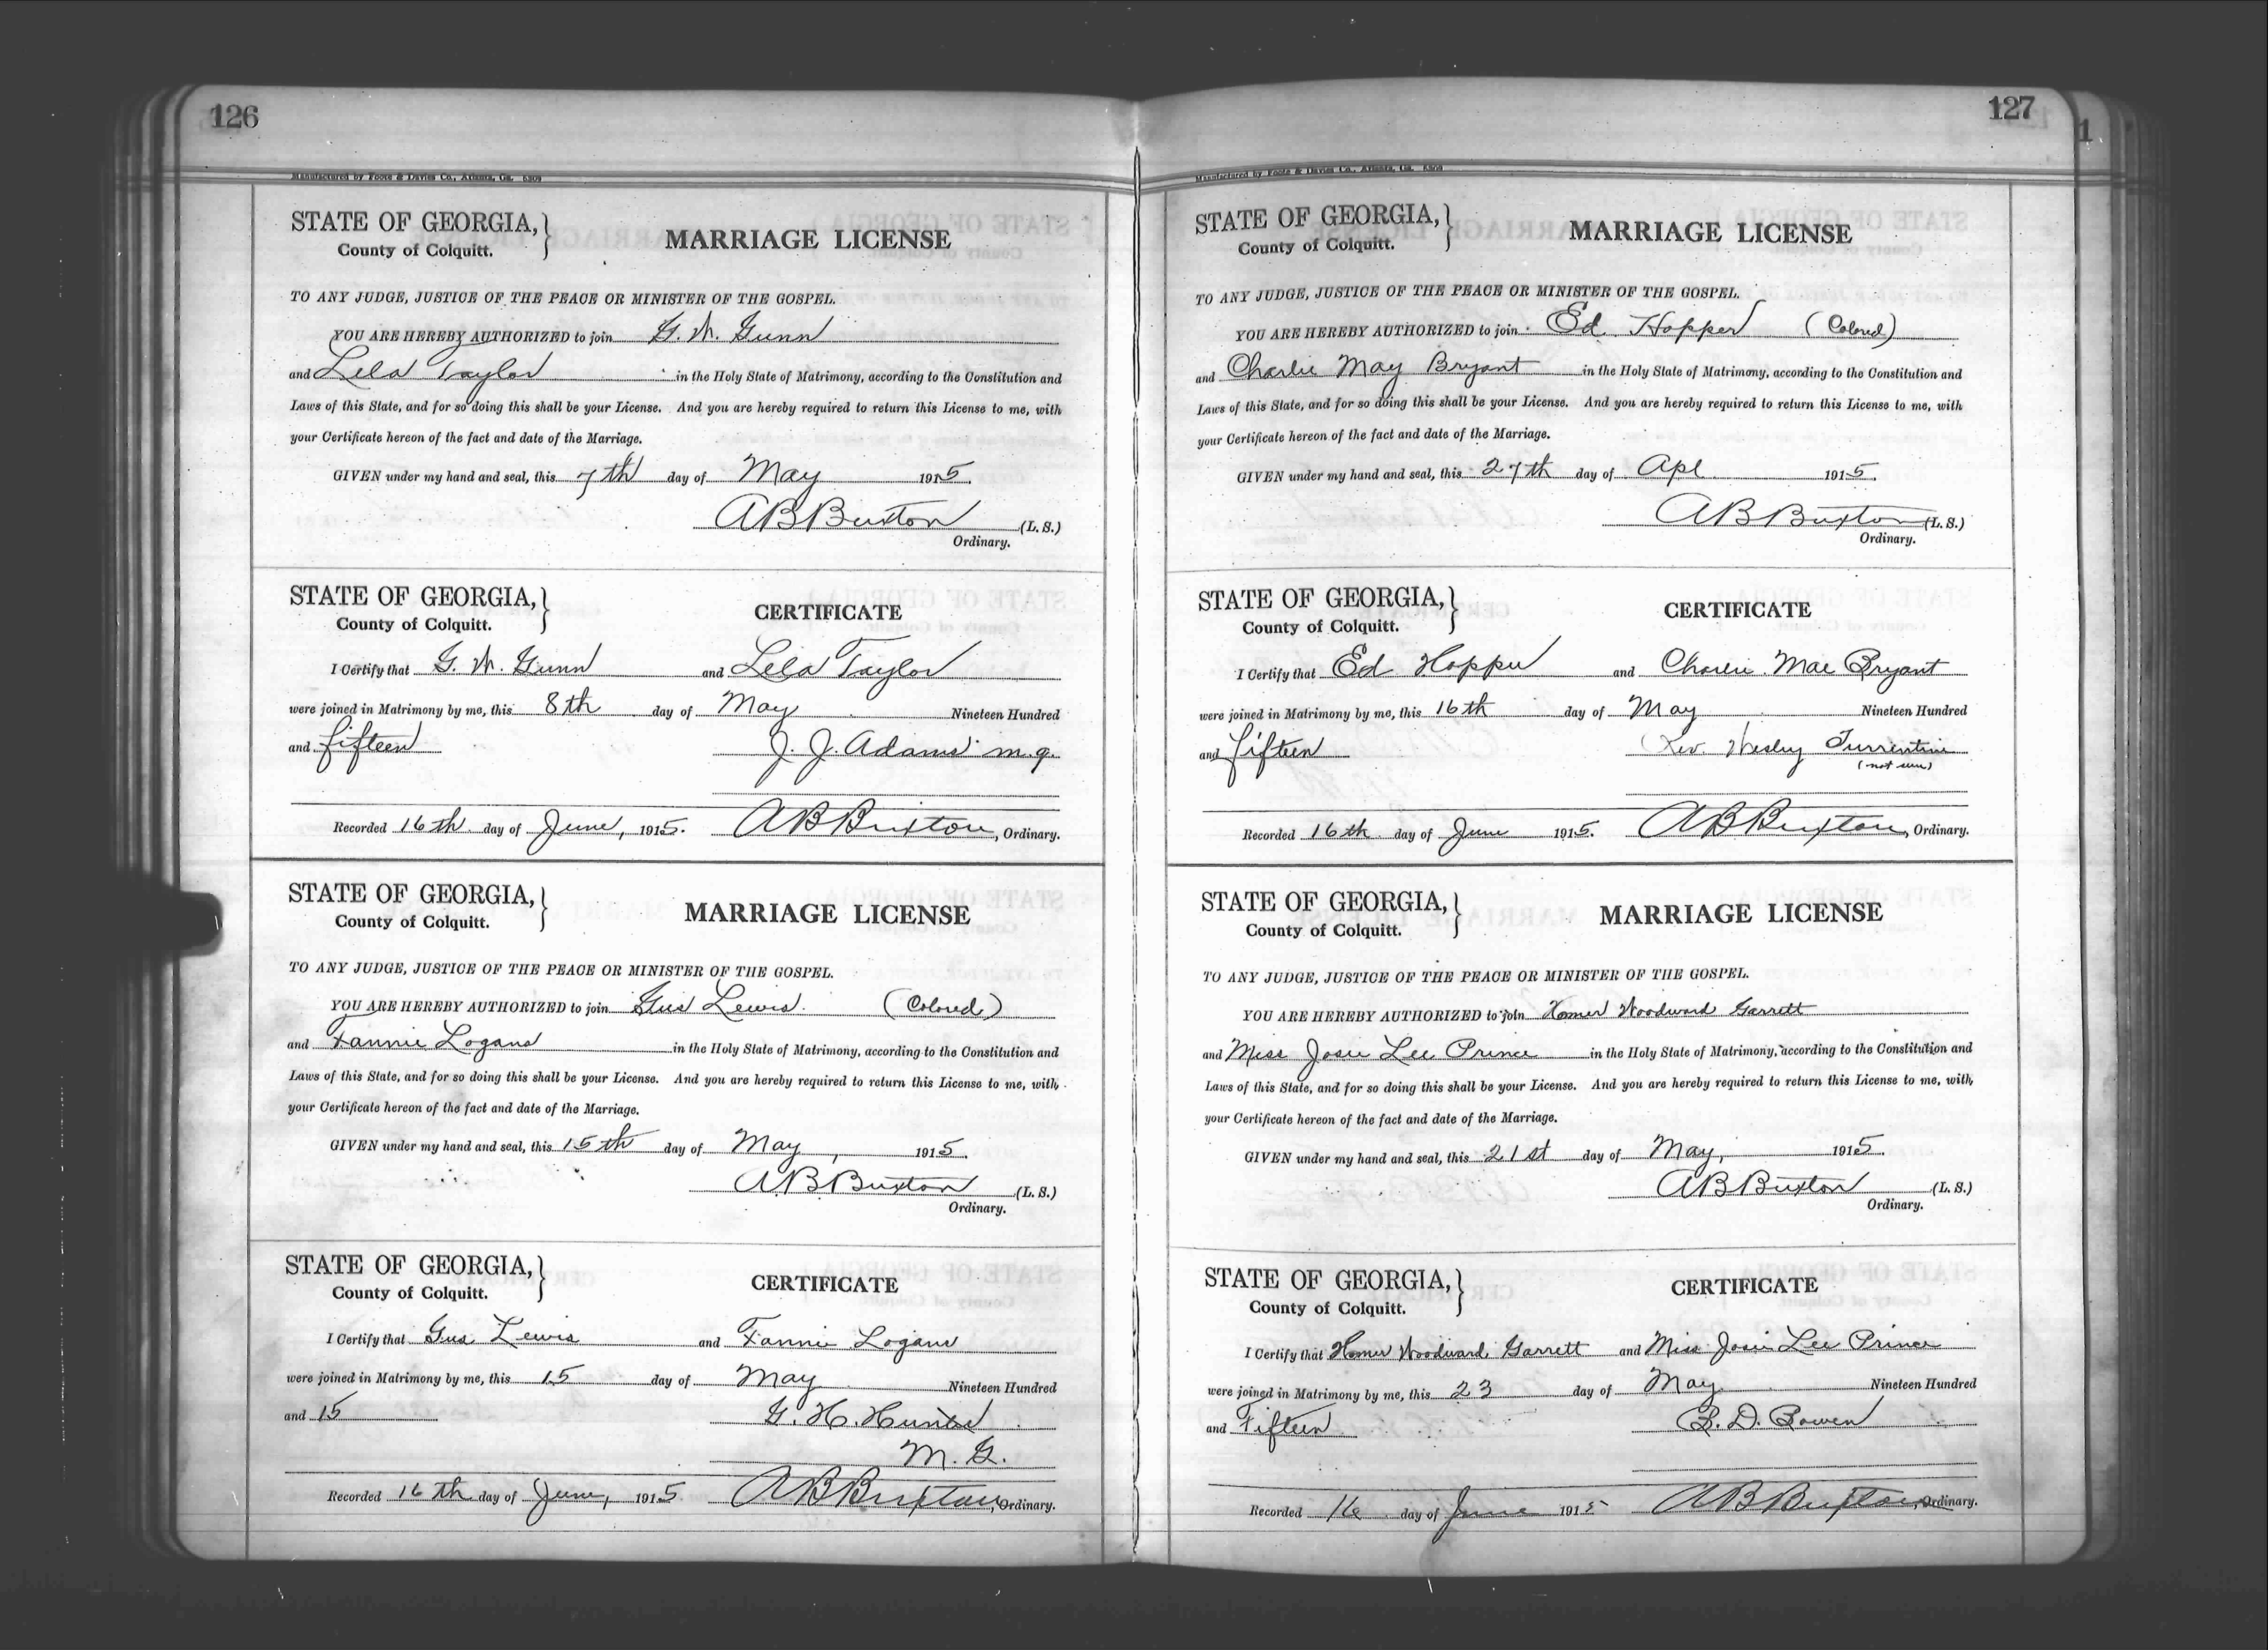 126
Manufactured by Foote & Davies Co., Atlanta, Ga. 5309
STATE OF GEORGIA,
County of Colquitt.
MARRIAGE LICENSE
TO ANY JUDGE, JUSTICE OF THE PEACE OR MINISTER OF THE GOSPEL.
YOU ARE HEREBY AUTHORIZED to join G. W. Gunn
and Lela Taylor in the Holy State of Matrimony, according to the Constitution and
Laws of this State, and for so doing this shall be your License. And you are hereby required to return this License to me, with
your Certificate hereon of the fact and date of the Marriage.
GIVEN under my hand and seal, this 7th day of May 1915.
A B Buxton (L. S.)
Ordinary.
STATE OF GEORGIA,
County of Colquitt.
CERTIFICATE
I Certify that G. W. Gunn and Lela Taylor
were joined in Matrimony by me, this 8th day of May Nineteen Hundred
and fifteen J. J. Adams m.g.
Recorded 16th day of June, 1915. A B Buxton, Ordinary.
STATE OF GEORGIA,
County of Colquitt.
MARRIAGE LICENSE
TO ANY JUDGE, JUSTICE OF THE PEACE OR MINISTER OF THE GOSPEL.
YOU ARE HEREBY AUTHORIZED to join Gus Lewis. (Colored)
and Fannie Logans in the Holy State of Matrimony, according to the Constitution and
Laws of this State, and for so doing this shall be your License. And you are hereby required to return this License to me, with
your Certificate hereon of the fact and date of the Marriage.
GIVEN under my hand and seal, this 15th day of May, 1915.
A B Buxton (L. S.)
Ordinary.
STATE OF GEORGIA,
County of Colquitt.
CERTIFICATE
I Certify that Gus Lewis and Fannie Logans
were joined in Matrimony by me, this 15 day of May Nineteen Hundred
and 15 G. H.
M. G.
Recorded 16th day of June, 1915 A B Buxton, Ordinary.
127
Manufactured by Foote & Davies Co., Atlanta, Ga. 5309
STATE OF GEORGIA,
County of Colquitt.
MARRIAGE LICENSE
TO ANY JUDGE, JUSTICE OF THE PEACE OR MINISTER OF THE GOSPEL.
YOU ARE HEREBY AUTHORIZED to join Ed Hopper (Colored)
and Charlie May Bryant in the Holy State of Matrimony, according to the Constitution and
Laws of this State, and for so doing this shall be your License. And you are hereby required to return this License to me, with
your Certificate hereon of the fact and date of the Marriage.
GIVEN under my hand and seal, this 27th day of Apl 1915.
A B Buxton (L. S.)
Ordinary.
STATE OF GEORGIA,
County of Colquitt.
CERTIFICATE
I Certify that Ed Hopper and Charlie Mae Bryant
were joined in Matrimony by me, this 16th day of May Nineteen Hundred
and fifteen Rev Wesley Turrentine
(not sure)
Recorded 16th day of June 1915. A B Buxton, Ordinary.
STATE OF GEORGIA,
County of Colquitt.
MARRIAGE LICENSE
TO ANY JUDGE, JUSTICE OF THE PEACE OR MINISTER OF THE GOSPEL.
YOU ARE HEREBY AUTHORIZED to join Homer Woodward Garrett
and Miss Josie Lee Prince in the Holy State of Matrimony, according to the Constitution and
Laws of this State, and for so doing this shall be your License. And you are hereby required to return this License to me, with
your Certificate hereon of the fact and date of the Marriage.
GIVEN under my hand and seal, this 21st day of May, 1915.
A B Buxton (L. S.)
Ordinary.
STATE OF GEORGIA,
County of Colquitt.
CERTIFICATE
I Certify that Homer Woodward Garrett and Miss Josie Lee Prince
were joined in Matrimony by me, this 23 day of May Nineteen Hundred
and Fifteen B. D. Bowen
Recorded 16 day of June 1915 A B Buxton, Ordinary.